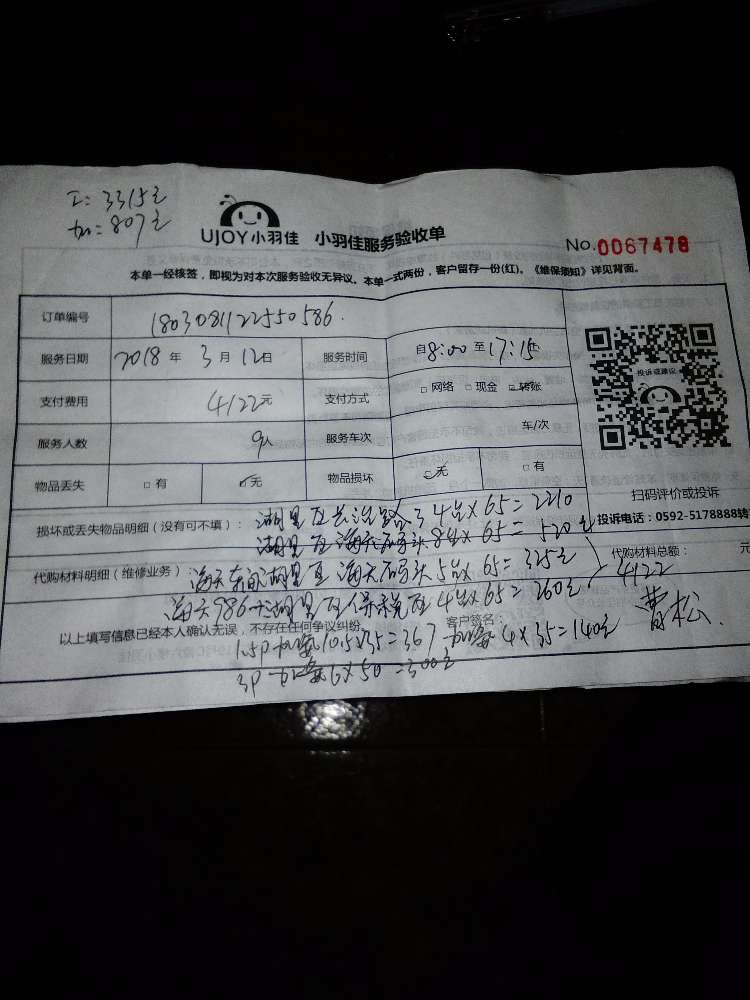 工：3315元
加：807元
UJOY小羽佳 小羽佳服务验收单
No.0067478
本单一经核签，即视为对本次服务验收无异议。本单一式两份，客户留存一份(红)。《维保须知》详见背面。
订单编号 1803081122550586
服务日期 2018年3月12日 服务时间 自8:00至17:15
支付费用 4122元 支付方式 □网络 □现金 □转账
服务人数 9人 服务车次 车/次
物品丢失 □有 □无 物品损坏 □无 □有
投诉或建议
扫码评价或投诉
投诉电话：0592-5178888转
损坏或丢失物品明细（没有可不填）： 湖里区长浩路34台X65=2210
湖里区海天码头8台X65=520元
代购材料明细（维修业务） 海天东渡湖里区海天码头5台X65=325元
代购材料总额： 元
4122
海天986 湖里区保税区4台X65=260元
以上填写信息已经本人确认无误，不存在任何争议纠纷。 客户签名： 曹松
1.5P加氨10.5X35=367 加氨4X35=140元
3P加氨6X50=300元